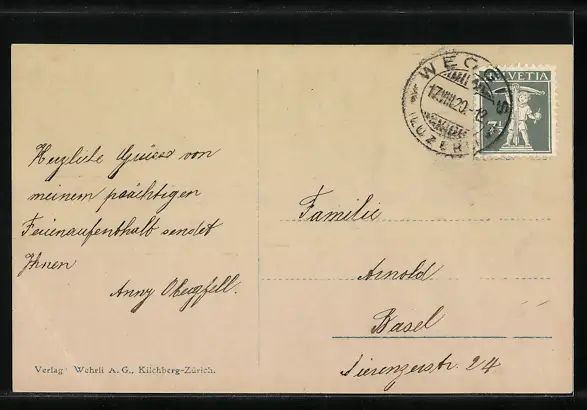 Herzliche Grüsse von
meinem prächtigen
Ferienaufenthalt sendet
Ihnen
Anny Obergfell.
Verlag Wehrli A. G., Kilchberg-Zürich.
WEGGIS
17.VIII.20.-12
(LUZERN)
HELVETIA
7½
Familie
Arnold
Basel
Sierenzerstr. 24